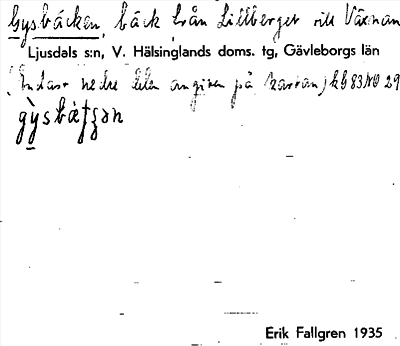 Gysbäcken, bäck från Lillberget till Växnan
Ljusdals s:n, V. Hälsinglands doms. tg, Gävleborgs län
(Endast nedre delen angiven på kartan) kG 83 NO 29
Erik Fallgren 1935